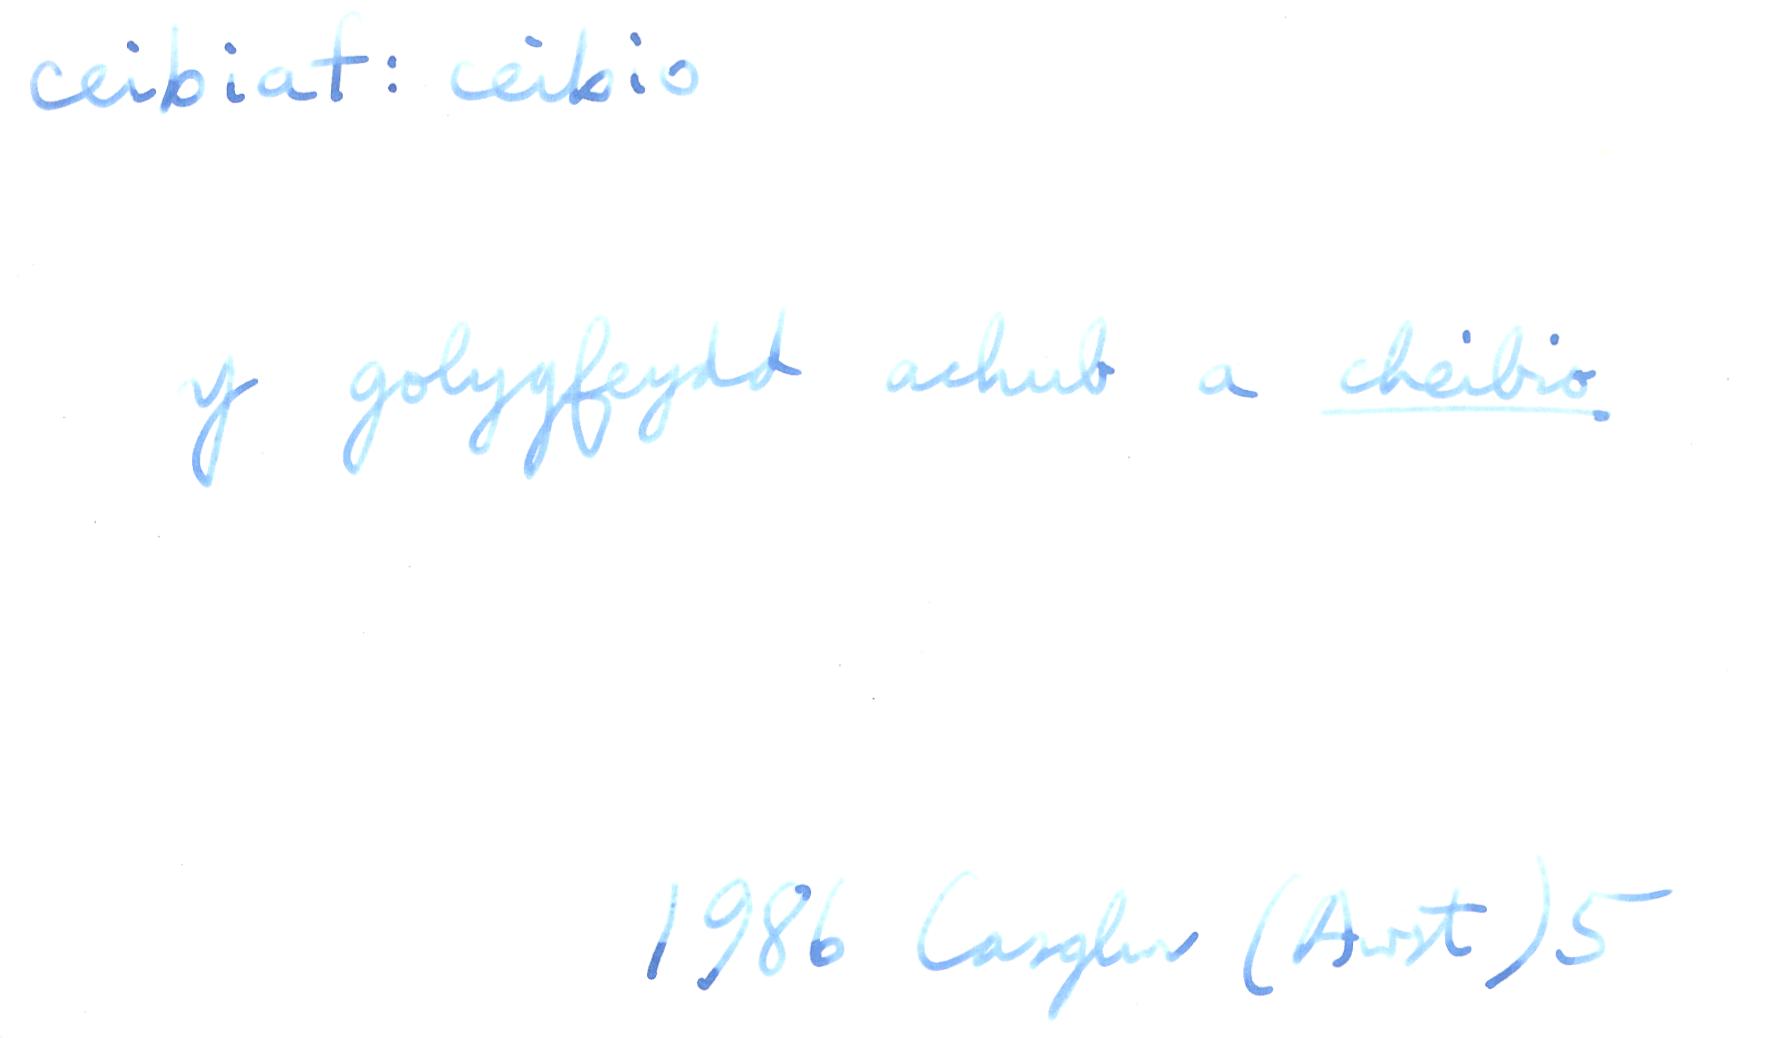 ceibiaf: ceibio
y golygfeydd achub a cheibio.
1986 Casglwr (Awst) 5